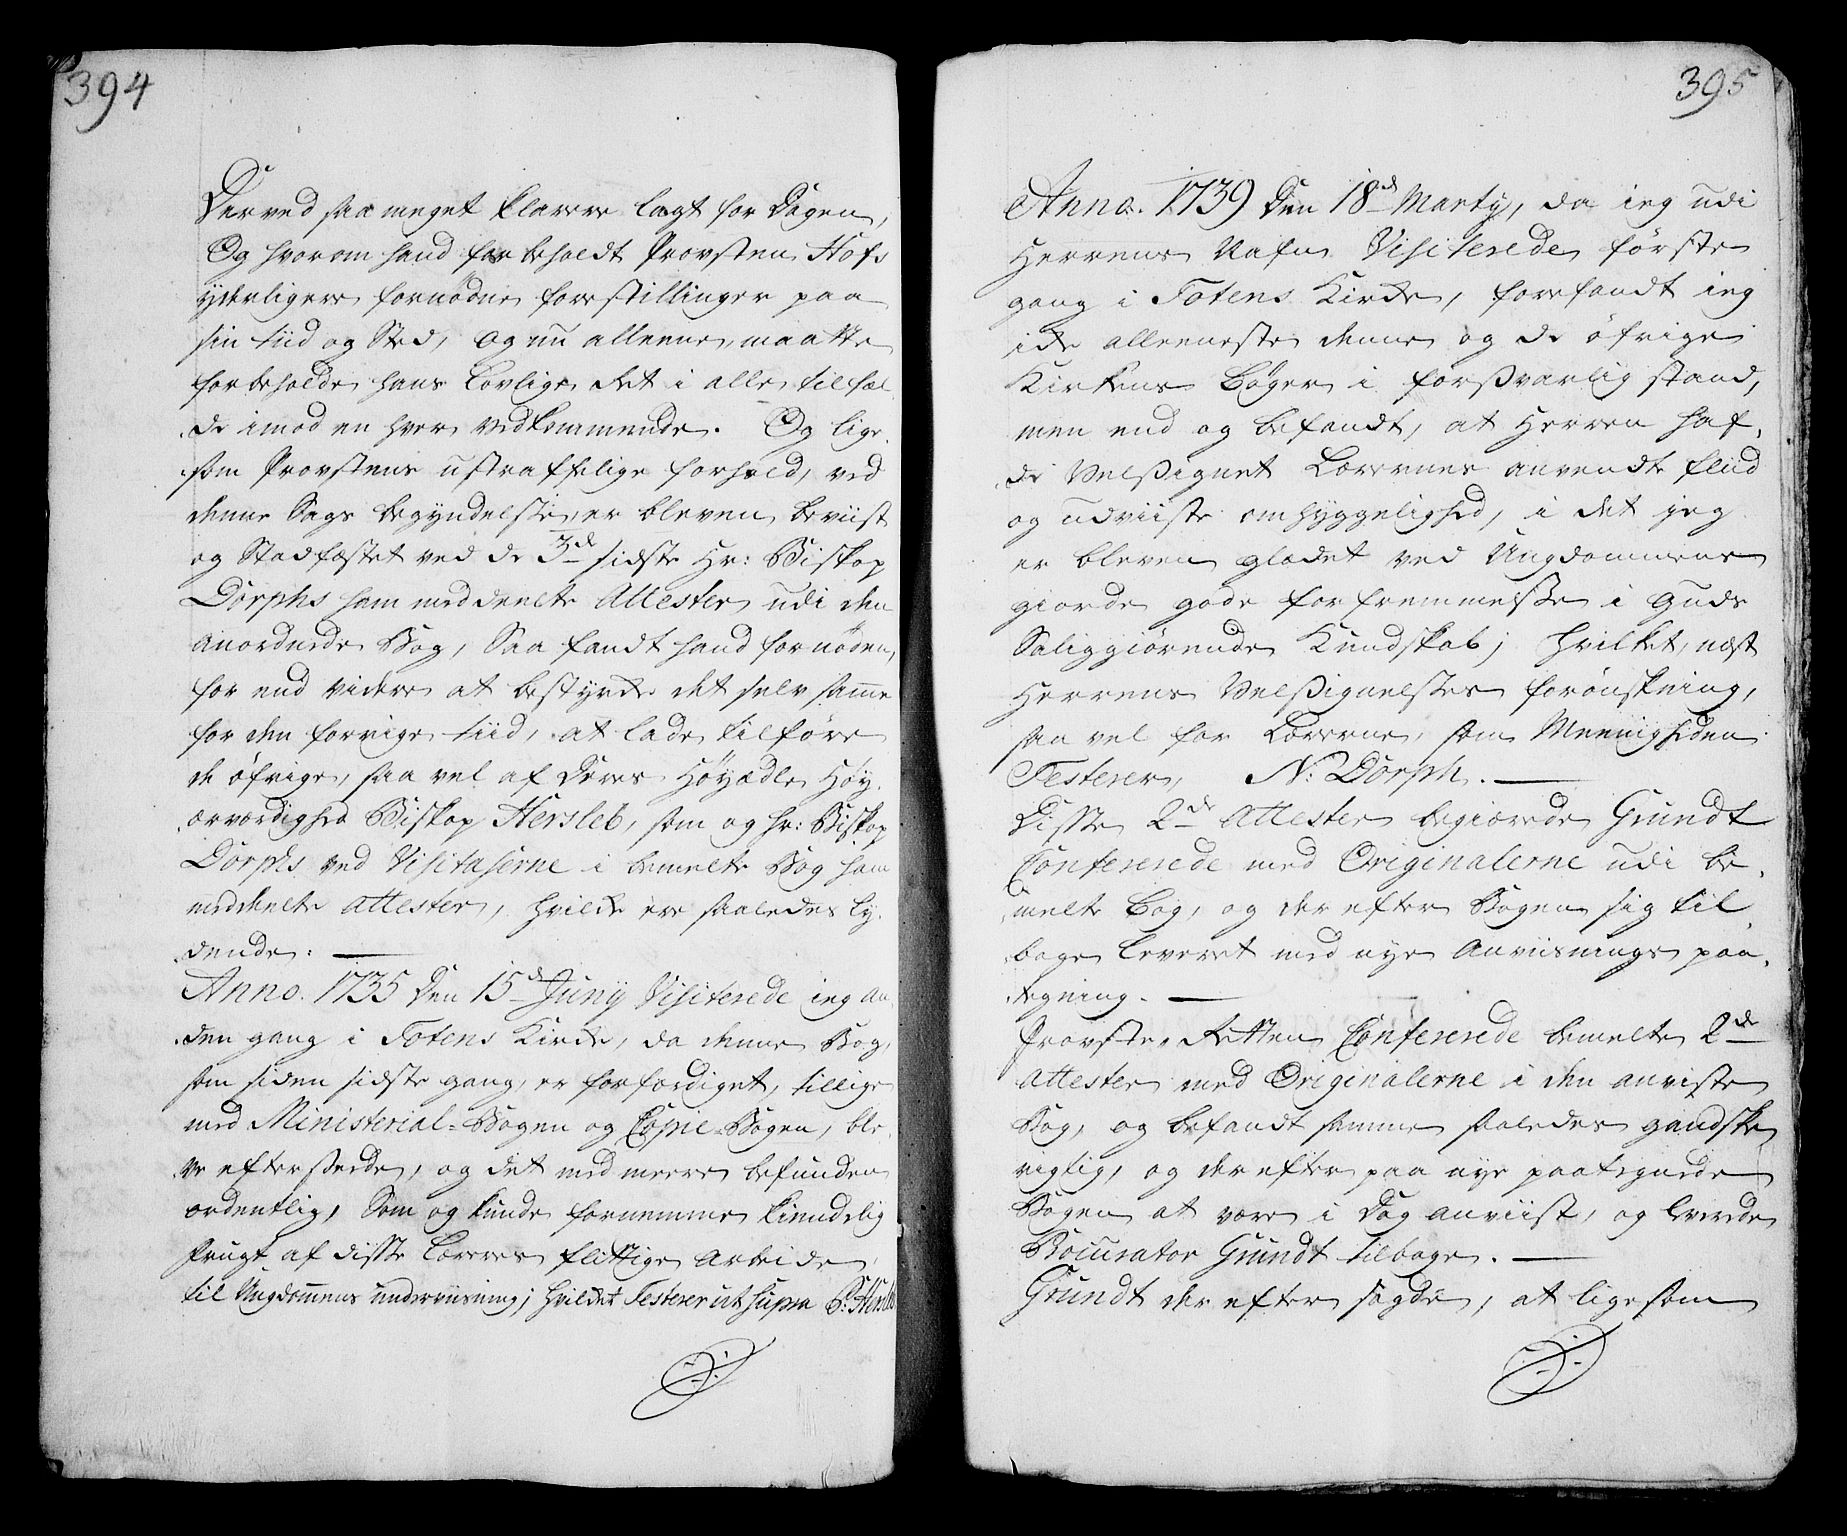 394
Derved saa meget klarere lagt for Dagen,
Og hvorom hand forbeholdt Provsten Hofs
yderligere fornødne forestillinger paa
sin tiid og Sted, og nu alleene maatte
forbeholde hans Lovlige Ret i alle tilfæl,
de imod en hver vedkommende. Og lige,
som Provstens ustraffelige forhold, ved
denne Sags begyndelse, er bleven beviist
og Stadfæstet ved de 3de sidste Hr: Biskop
Dorphs ham meddeelte Attester udi den
anordnede Bog, Saa fandt hand fornøden,
for end videre at bestyrke det selv samme
for den forrige tiid, at lade tilføre
de øfrige, saa vel af Deres Høyædle Høy,
ærværdighed Biskop Hersleb, som og Hr: Biskop
Dorphs ved Visitaserne i bemelte Bog ham
meddeelte Attester, hvilke ere saaledes ly,
dende:
Anno. 1735 Den 15de Junij Visiterede ieg an,
den gang i Totens Kirke, da denne Bog,
som siden sidste gang, er forfærdiget, tillige
med Ministerial-Bogen og Copie-Bogen, ble,
ve efterseede, og det med meere befunden
ordentlig, Som og kunde fornemme kiendelig
Frugt af disse Lærere flittige Arbeide
til Ungdommens underviisning; hvilket Testerer ut supra P: Hersleb
395
Anno. 1739 Den 18de Martij, da ieg udi
Herrens Nafn Visiterede første
gang i Totens Kirke, forefandt ieg
icke alleeneste denne og de øfrige
Kirkens Bøger i forsvarlig stand,
men end og befandt, at Herren haf,
de Velsignet Lærernes anvendte fliid
og udviiste omhyggelighed, i det jeg
er bleven glædet ved Ungdommens
giorde gode forfremmelse i Guds
Saliggiørende Kundskab; hvilket, næst
Herrens Velsignelses forønskning,
saa vel for Lærerne, som Meenigheden
Testerer, N: Dorph.
Disse 2de Attester begiærede Grundt
Confererede med Originalerne udi be,
melte Bog, og derefter Bogen sig til,
bage leveret med nye Anviisnings paa,
tegning.
Provste-Retten Confererede bemelte 2de
Attester med Originalerne i den anviste
Bog, og befandt samme saaledes gandske
rigtig, og derefter paa nye paategnede
Bogen at være i Dag anviist, og leverede
Procurator Grundt tilbage.
Grundt derefter sagde, at ligesom